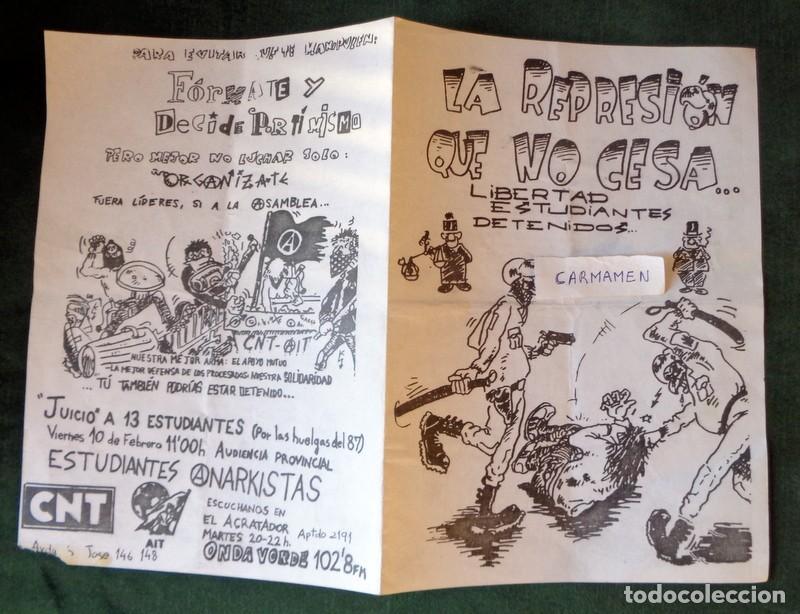 PARA EVITAR QUE TE MANIPULEN:
FÓRMATE Y
DECIDE POR TI MISMO
PERO MEJOR NO LUCHAR SOLO:
ORGANIZATE
FUERA LÍDERES, SI A LA ASAMBLEA...
A
CNT-AIT
NUESTRA MEJOR ARMA: EL APOYO MUTUO
-LA MEJOR DEFENSA DE LOS PROCESADOS: NUESTRA SOLIDARIDAD
... TÚ TAMBIÉN PODRÍAS ESTAR DETENIDO...
"JUICIO" A 13 ESTUDIANTES (Por las huelgas del 87)
Viernes 10 de Febrero 11'00h AUDIENCIA PROVINCIAL
ESTUDIANTES ANARKISTAS
CNT
AIT
ESCUCHANOS EN
EL ACRATADOR Aptdo 2191
MARTES 20-22h.
ONDA VORDE 102'8 FM
Avda S. Jose 146 148
LA REPRESIÓN
QUE NO CESA...
LIBERTAD
ESTUDIANTES
DETENIDOS...
CARMAMEN
todocoleccion